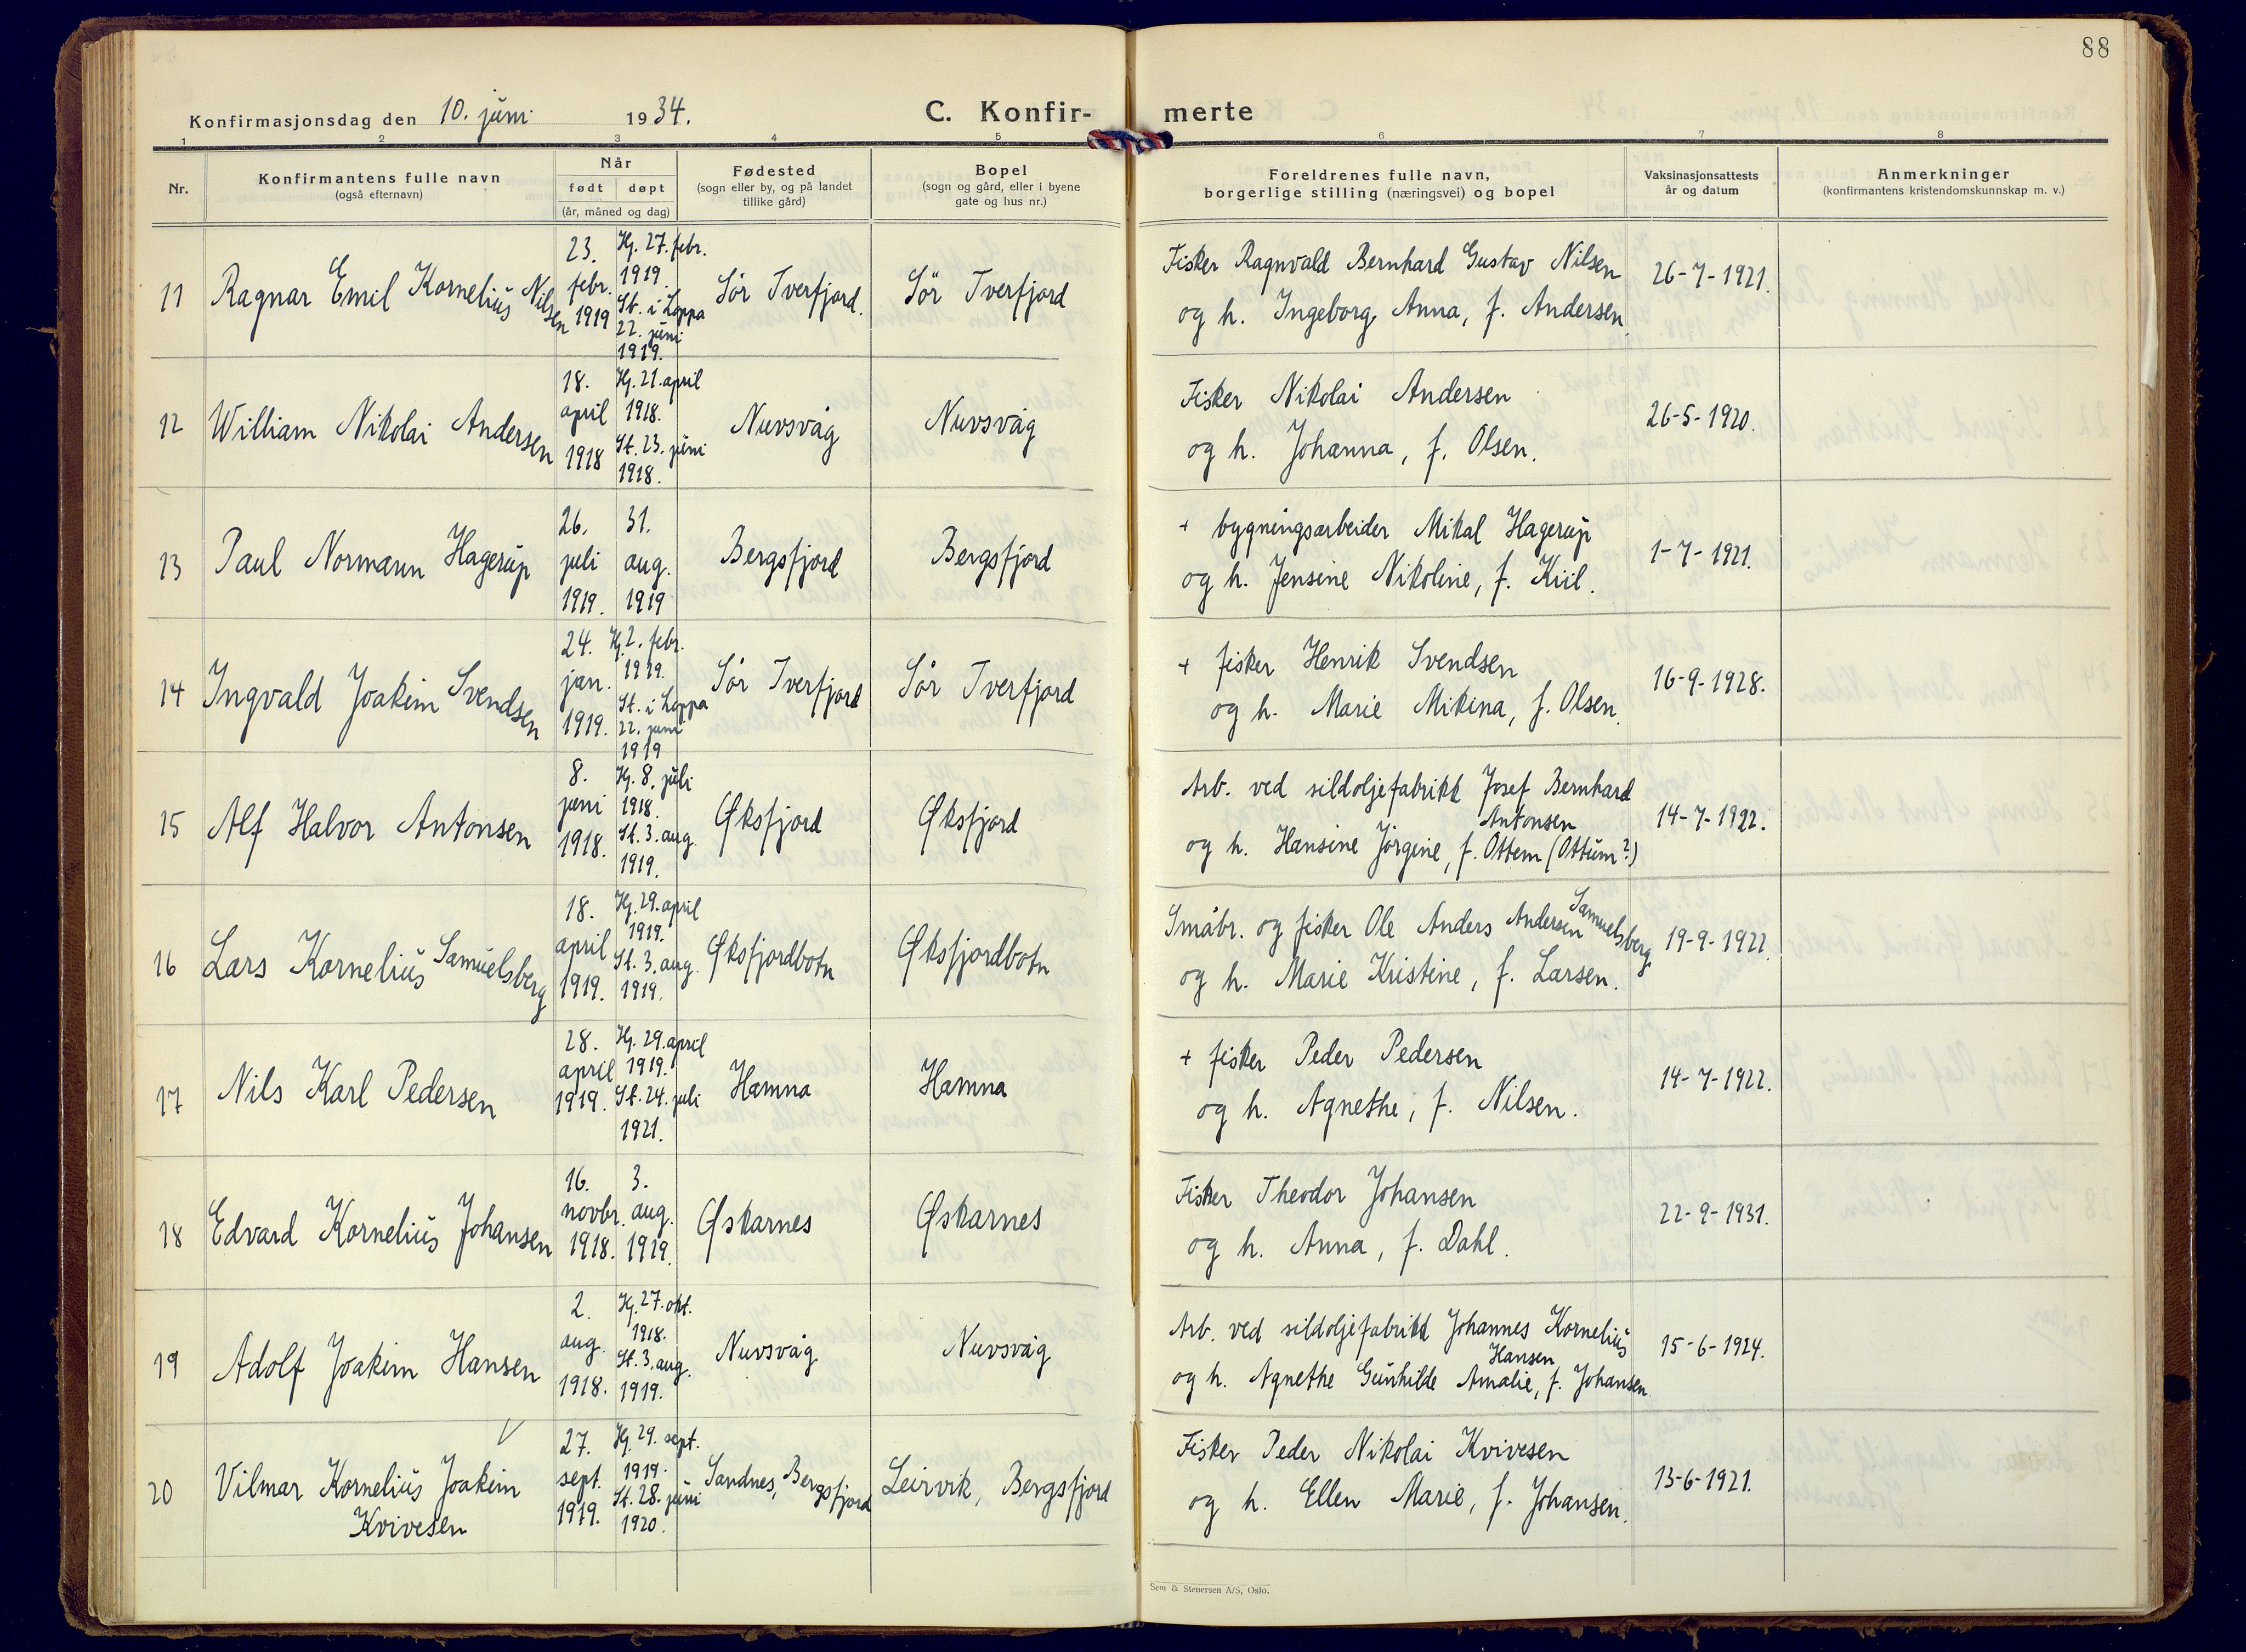 88
Konfirmasjonsdag den 10. juni 1934.
C. Konfir-
merte
1 2 3 4 5 6 7 8
Nr.
Konfirmantens fulle navn
(også efternavn)
Når
født døpt
(år, måned og dag)
Fødested
(sogn eller by, og på landet
tillike gård)
Bopel
(sogn og gård, eller i byene
gate og hus nr.)
Foreldrenes fulle navn,
borgerlige stilling (næringsvei) og bopel
Vaksinasjonsattests
år og datum
Anmerkninger
(konfirmantens kristendomskunnskap m. v.)
11
Ragnar Emil Kornelius Nilsen
23.
febr.
1919
Hj. 27. febr.
1919.
St. i Loppa
22. juni
1919.
Sør Tverfjord.
Sør Tverfjord
Fisker Ragnvald Bernhard Gustav Nilsen
og h. Ingeborg Anna, f. Andersen.
26-7-1921.
12
William Nikolai Andersen
18.
april
1918
Hj. 21. april
1918.
St. 23. juni
1918.
Nuvsvåg
Nuvsvåg
Fisker Nikolai Andersen
og h. Johanna, f. Olsen.
26-5-1920.
13
Paul Normann Hagerup
26.
juli
1919.
31.
aug.
1919
Bergsfjord
Bergsfjord
+ bygningsarbeider Mikal Hagerup
og h. Jensine Nikoline, f. Kiil.
1-7-1921.
14
Ingvald Joakim Svendsen
24.
jan.
1919.
Hj. 2. febr.
1919.
St. i Loppa
22. juni
1919
Sør Tverfjord
Sør Tverfjord
+ fisker Henrik Svendsen
og h. Marie Mikina, f. Olsen.
16-9-1928.
15
Alf Halvor Antonsen
8.
juni
1918.
Hj. 8. juli
1918.
St. 3. aug.
1919.
Øksfjord
Øksfjord
Arb. ved sildoljefabrikk Josef Bernhard
Antonsen
og h. Hansine Jørgine, f. Ottem (Ottum?)
14-7-1922.
16
Lars Kornelius Samuelsberg
18.
april
1919.
Hj. 29. april
1919.
St. 3. aug.
1919.
Øksfjordbotn
Øksfjordbotn
Småbr. og fisker Ole Anders Andersen Samuelsberg
og h. Marie Kristine, f. Larsen.
19-9-1922.
17
Nils Karl Pedersen
28.
april
1919.
Hj. 29. april
1919.
St. 24. juli
1921.
Hamna
Hamna
+ fisker Peder Pedersen
og h. Agnethe, f. Nilsen.
14-7-1922.
18
Edvard Kornelius Johansen
16.
novbr.
1918.
3.
aug.
1919.
Øskarnes
Øskarnes
Fisker Theodor Johansen
og h. Anna, f. Dahl.
22-9-1931.
19
Adolf Joakim Hansen
2.
aug.
1918.
Hj. 27. okt.
1918.
St. 3. aug.
1919.
Nuvsvåg
Nuvsvåg
Arb. ved sildoljefabrikk Johannes Kornelius
Hansen
og h. Agnethe Gunhilde Amalie, f. Johansen
15-6-1924.
20
Vilmar Kornelius Joakim
Kvivesen
27.
sept.
1919.
Hj. 29. sept.
1919.
St. 28. juni
1920.
Sandnes, Bergsfjord
Leirvik, Bergsfjord
Fisker Peder Nikolai Kvivesen
og h. Ellen Marie, f. Johansen.
13-6-1921.
Sem & Stenersen A/S, Oslo.